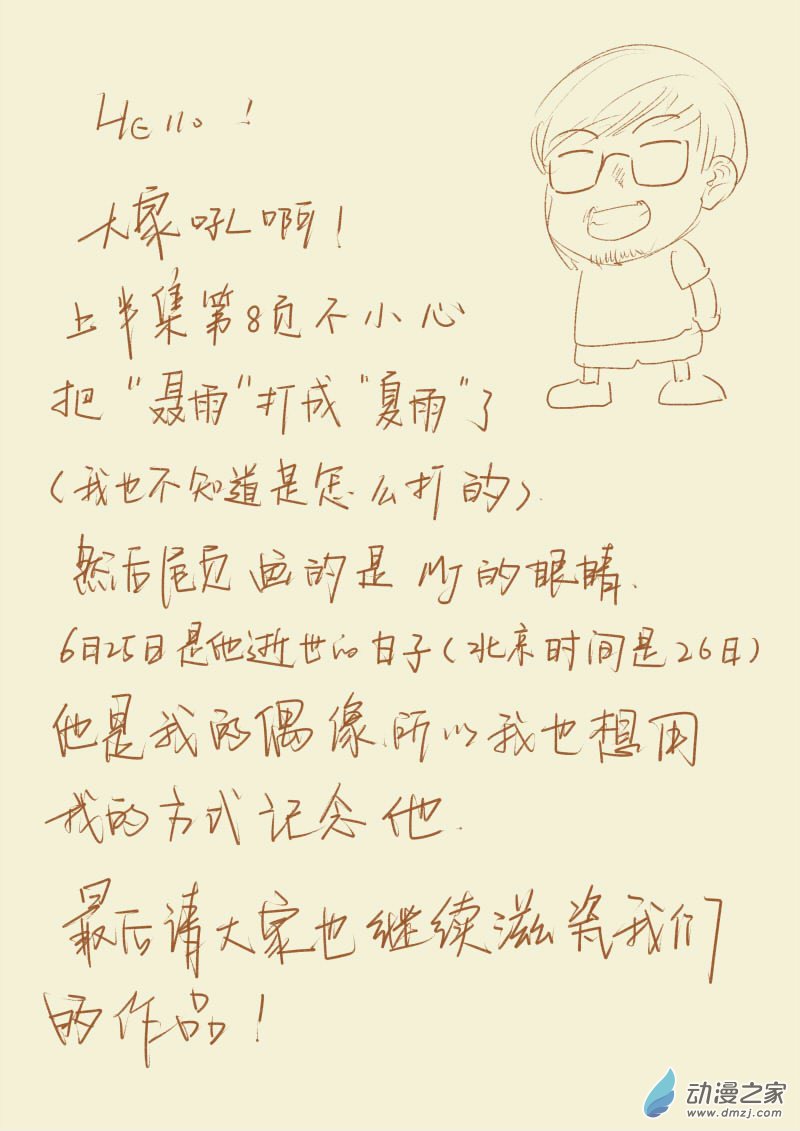 Hello!
大家吼啊!
上半集第8页不小心
把“聂雨”打成“夏雨”了
(我也不知道是怎么打的).
然后尾页画的是MJ的眼睛.
6月25日是他逝世的日子(北京时间是26日)
他是我的偶像.所以我也想用
我的方式记念他.
最后请大家也继续滋瓷我们
的作品!
动漫之家
www.dmzj.com